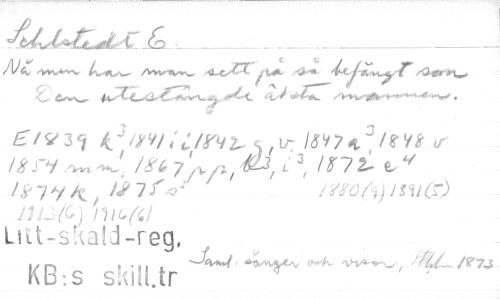 Sehlstedt E.
Nå men har man sett på så befängt som
Den utestängde äkta mannen.
E 1839 k³, 1841 i i, 1842 g, v, 1847 a³, 1848 v
1854 m m, 1867 p p, k3, i³, 1872 e⁴
1874 k, 1875 s³ 1880 (9) 1891 (5)
1913 (6) 1916 (6)
Litt-skald-reg.
KB:s skill.tr
Saml. sånger och visor, 1873